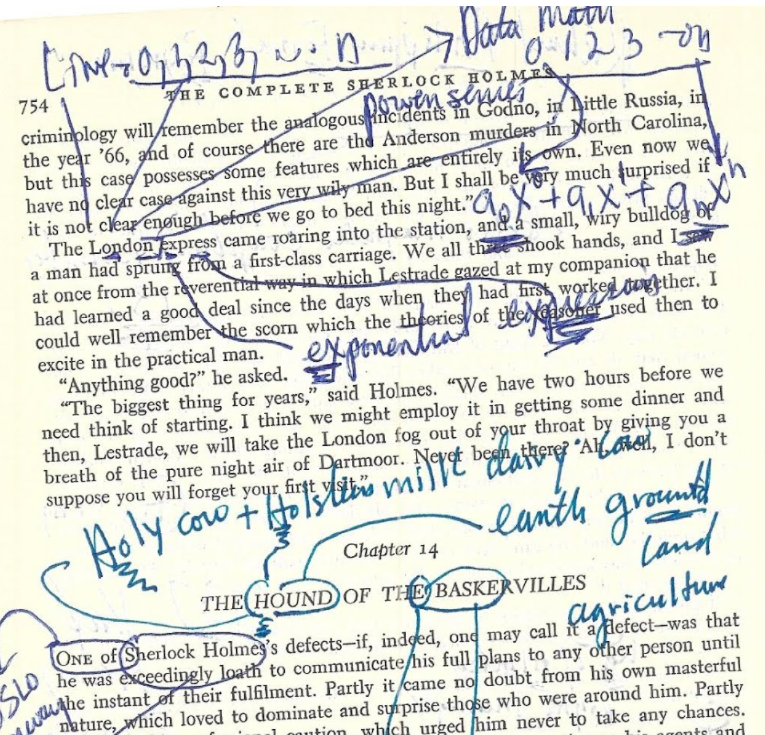 Line - 0, 1, 2, 3, ... n → Data Math
0 1 2 3 - on
THE COMPLETE SHERLOCK HOLMES
754
power series
criminology will remember the analogous incidents in Godno, in Little Russia, in
the year '66, and of course there are the Anderson murders in North Carolina,
but this case possesses some features which are entirely its own. Even now we
have no clear case against this very wily man. But I shall be very much surprised if
it is not clear enough before we go to bed this night."
a₀x⁰ + a₁x¹ + aₙxⁿ
The London express came roaring into the station, and a small, wiry bulldog of
a man had sprung from a first-class carriage. We all three shook hands, and I saw
at once from the reverential way in which Lestrade gazed at my companion that he
had learned a good deal since the days when they had first worked together. I
could well remember the scorn which the theories of the reasoner used then to
exponential expression
excite in the practical man.
"Anything good?" he asked.
"The biggest thing for years," said Holmes. "We have two hours before we
need think of starting. I think we might employ it in getting some dinner and
then, Lestrade, we will take the London fog out of your throat by giving you a
breath of the pure night air of Dartmoor. Never been there? Ah, well, I don't
suppose you will forget your first visit."
Holy cow + Holstein milk dairy cow
earth ground
land
agriculture
Chapter 14
THE HOUND OF THE BASKERVILLES
ONE of Sherlock Holmes's defects—if, indeed, one may call it a defect—was that
he was exceedingly loath to communicate his full plans to any other person until
the instant of their fulfilment. Partly it came no doubt from his own masterful
nature, which loved to dominate and surprise those who were around him. Partly
caution, which urged him never to take any chances.
agents and